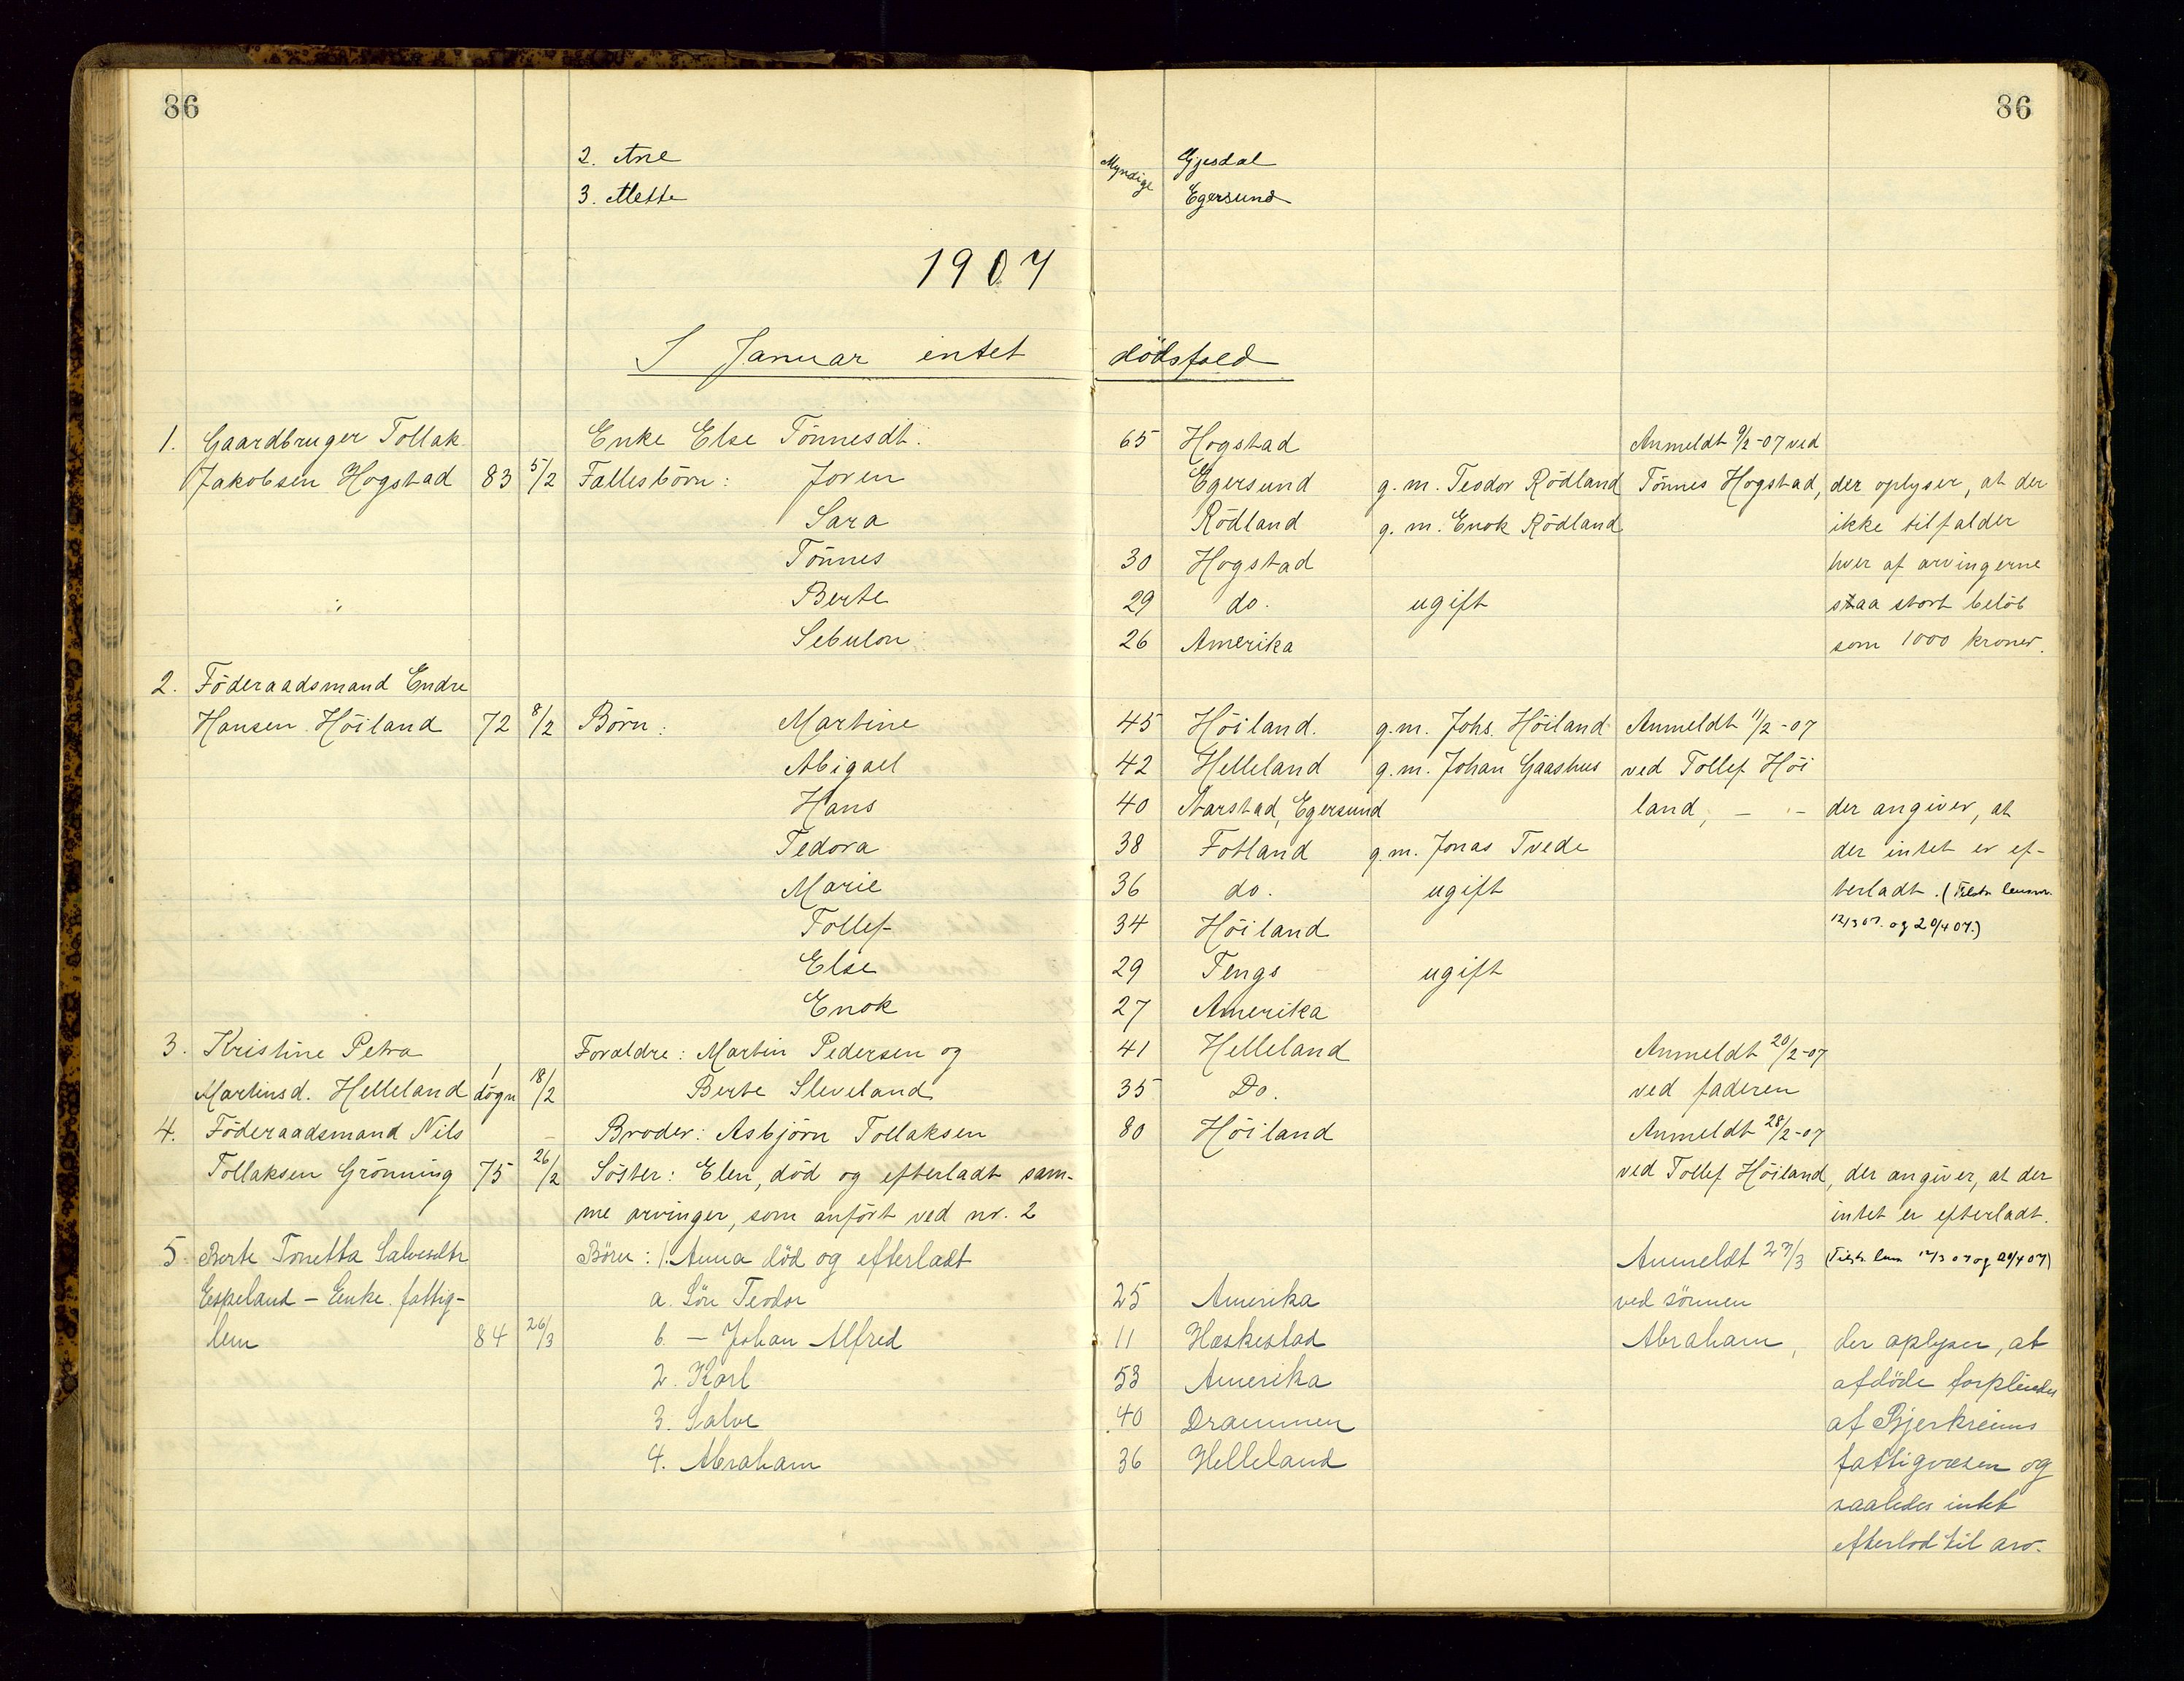 86 86
2. Ane Myndige Gjesdal
3. Mette Egersund
1907
I Januar intet dødsfald
1. Gaardbruger Tollak Enke Else Tönnesdt. 65 Hogstad Anmeldt 9/2-07 ved
Jakobsen Hogstad 83 5/2 Fallesbörn: Joren Egersund g. m. Teodor Rödland Tönnes Hogstad, der oplyser, at der
Sara Rödland g. m. Enok Rödland ikke tilfalder
Tönnes 30 Hogstad hver af arvingerne
Berte 29 do. ugift saa stort belöb
Sebulon 26 Amerika som 1000 kroner.
2. Föderaadsmand Endre
Hansen Höiland 72 8/2 Börn: Martine 45 Höiland. g.m. Johs. Höiland Anmeldt 11/2-07
Abigael 42 Helleland g.m. Johan Gaashus ved Tollef Höi
Hans 40 Aarstad, Egersund land, – – der angiver, at
Tedora 38 Fotland g.m. Jonas Tvede der intet er ef-
Marie 36 do. ugift terladt. (
Tollef 34 Höiland 12/3 07. og 20/4 07.)
Else 29 Tengs ugift
Enok 27 Amerika
3. Kristine Petra 1 Foraldre: Martin Pedersen og 41 Helleland Anmeldt 20/2-07
Martinsd. Helleland dögn 18/2 Berte Sleveland 35 Do. ved faderen
4. Föderaadsmand Nils Broder: Asbjörn Tollaksen 80 Höiland Anmeldt 28/2-07
Tollaksen Grönning 75 26/2 Söster: Elen, död og efterladt sam- ved Tollef Höiland, der angiver, at der
me arvinger, som anfört ved nr. 2 intet er efterladt.
5 Berte Tonetta Salvesdtr Börn: 1. Anna död og efterladt Anmeldt 27/3 12/3 07 og 20/4 07)
Espeland – Enke. fattig- a. Sön Teodor 25 Amerika ved sönnen
lem 84 26/3 b. – Johan Alfred 11 Hæskestad Abraham, der oplyser, at
2. Karl 53 Amerika afdöde forpleiedes
3. Salve 40 Drammen af Bjerkreims
4. Abraham 36 Helleland fattigvæsen og
saaledes intet
efterlod til arv.